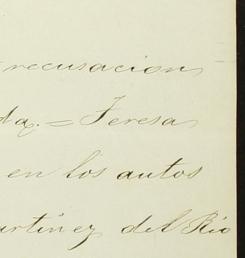 recusacion
da. = Teresa
en los autos
artinez del Rio